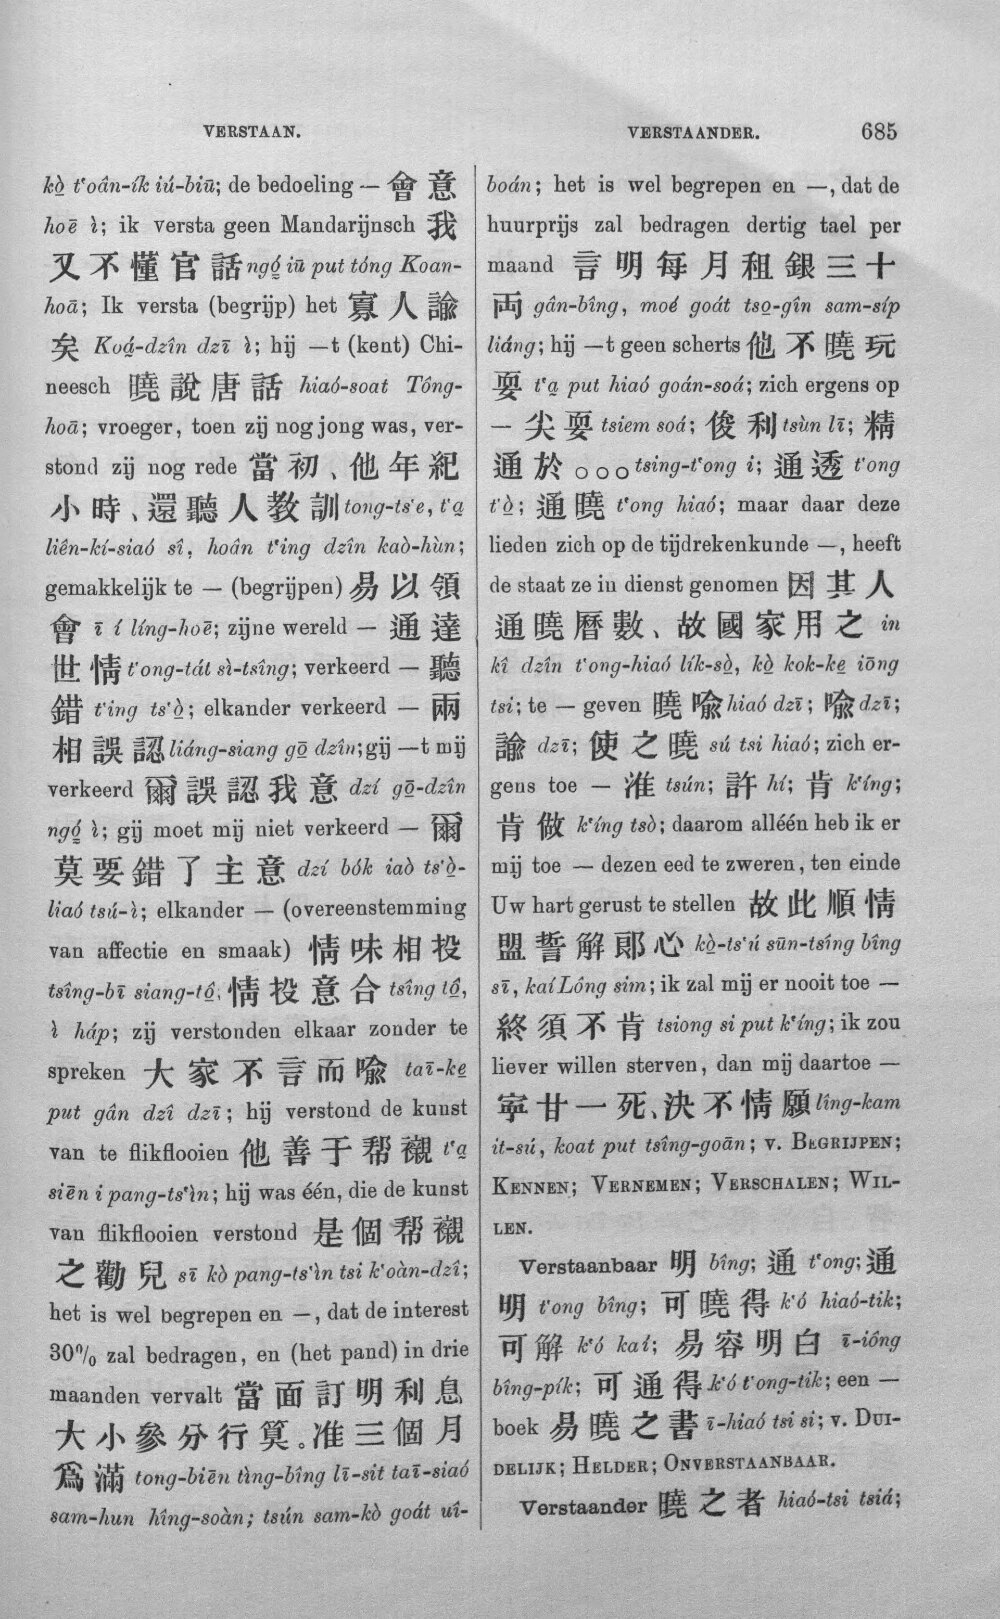 VERSTAAN.
VERSTAANDER. 685
kò̤ t‘oân-ík iú-biū; de bedoeling — 會 意
hoē ì; ik versta geen Mandarijnsch 我
又 不 懂 官 話 ngó̤ iū put tóng Koan-
hoā; Ik versta (begrijp) het 寡 人 諭
矣 Koá̤-dzîn dzī ì; hij —t (kent) Chi-
neesch 曉 說 唐 話 hiaó-soat Tông-
hoā; vroeger, toen zij nog jong was, ver-
stond zij nog rede 當 初、他 年 紀
小 時、還 聽 人 教 訓 tong-ts‘e, t‘a̤
liên-kí-siaó sî, hoân t‘ing dzîn kaò-hùn;
gemakkelijk te — (begrijpen) 易 以 領
會 ī í líng-hoē; zijne wereld — 通 達
世 情 t‘ong-tát sì-tsîng; verkeerd — 聽
錯 t‘ing ts‘ò̤; elkander verkeerd — 兩
相 誤 認 liáng-siang gō̤ dzîn; gij —t mij
verkeerd 爾 誤 認 我 意 dzí gō̤-dzîn
ngó̤ ì; gij moet mij niet verkeerd — 爾
莫 要 錯 了 主 意 dzí bók iaò ts‘ò̤-
liaó tsú-ì; elkander — (overeenstemming
van affectie en smaak) 情 味 相 投
tsîng-bī siang-tô̤, 情 投 意 合 tsîng tô̤,
ì háp; zij verstonden elkaar zonder te
spreken 大 家 不 言 而 喩 taī-ke̤
put gân dzî dzī; hij verstond de kunst
van te flikflooien 他 善 于 帮 襯 t‘a̤
siēn i pang-ts‘ìn; hij was één, die de kunst
van flikflooien verstond 是 個 帮 襯
之 勸 兒 sī kò pang-ts‘ìn tsi k‘oàn-dzî;
het is wel begrepen en —, dat de interest
30% zal bedragen, en (het pand) in drie
maanden vervalt 當 面 訂 明 利 息
大 小 參 分 行 筭。准 三 個 月
爲 滿 tong-biēn tìng-bîng lī-sit taī-siaó
sam-hun hîng-soàn; tsún sam-kò goát uî-
boán; het is wel begrepen en —, dat de
huurprijs zal bedragen dertig tael per
maand 言 明 每 月 租 銀 三 十
両 gân-bîng, moé goát tso̤-gîn sam-síp
liáng; hij —t geen scherts 他 不 曉 玩
耍 t‘a̤ put hiaó goán-soá; zich ergens op
— 尖 耍 tsiem soá; 俊 利 tsùn lī; 精
通 於 ○○○ tsing-t‘ong i; 通 透 t‘ong
t‘ò̤; 通 曉 t‘ong hiaó; maar daar deze
lieden zich op de tijdrekenkunde —, heeft
de staat ze in dienst genomen 因 其 人
通 曉 曆 數、故 國 家 用 之 in
kî dzîn t‘ong-hiaó lík-sò̤, kò̤ kok-ke̤ iōng
tsi; te — geven 曉 喩 hiaó dzī; 喩 dzī;
諭 dzī; 使 之 曉 sú tsi hiaó; zich er-
gens toe — 准 tsún; 許 hí; 肯 k‘íng;
肯 做 k‘íng tsò; daarom alléén heb ik er
mij toe — dezen eed te zweren, ten einde
Uw hart gerust te stellen 故 此 順 情
盟 誓 解 郎 心 kò̤-ts‘ú sūn-tsîng bîng
sī, kaí Lông sim; ik zal mij er nooit toe —
終 須 不 肯 tsiong si put k‘íng; ik zou
liever willen sterven, dan mij daartoe —
寧 甘 一 死、決 不 情 願 lîng-kam
it-sú, koat put tsîng-goān; v. BEGRIJPEN;
KENNEN; VERNEMEN; VERSCHALEN; WIL-
LEN.
Verstaanbaar 明 bîng; 通 t‘ong; 通
明 t‘ong bîng; 可 曉 得 k‘ó hiaó-tik;
可 解 k‘ó kaí; 易 容 明 白 ī-iông
bîng-pík; 可 通 得 k‘ó t‘ong-tik; een —
boek 易 曉 之 書 ī-hiaó tsi si; v. DUI-
DELIJK; HELDER; ONVERSTAANBAAR.
Verstaander 曉 之 者 hiaó-tsi tsiá;